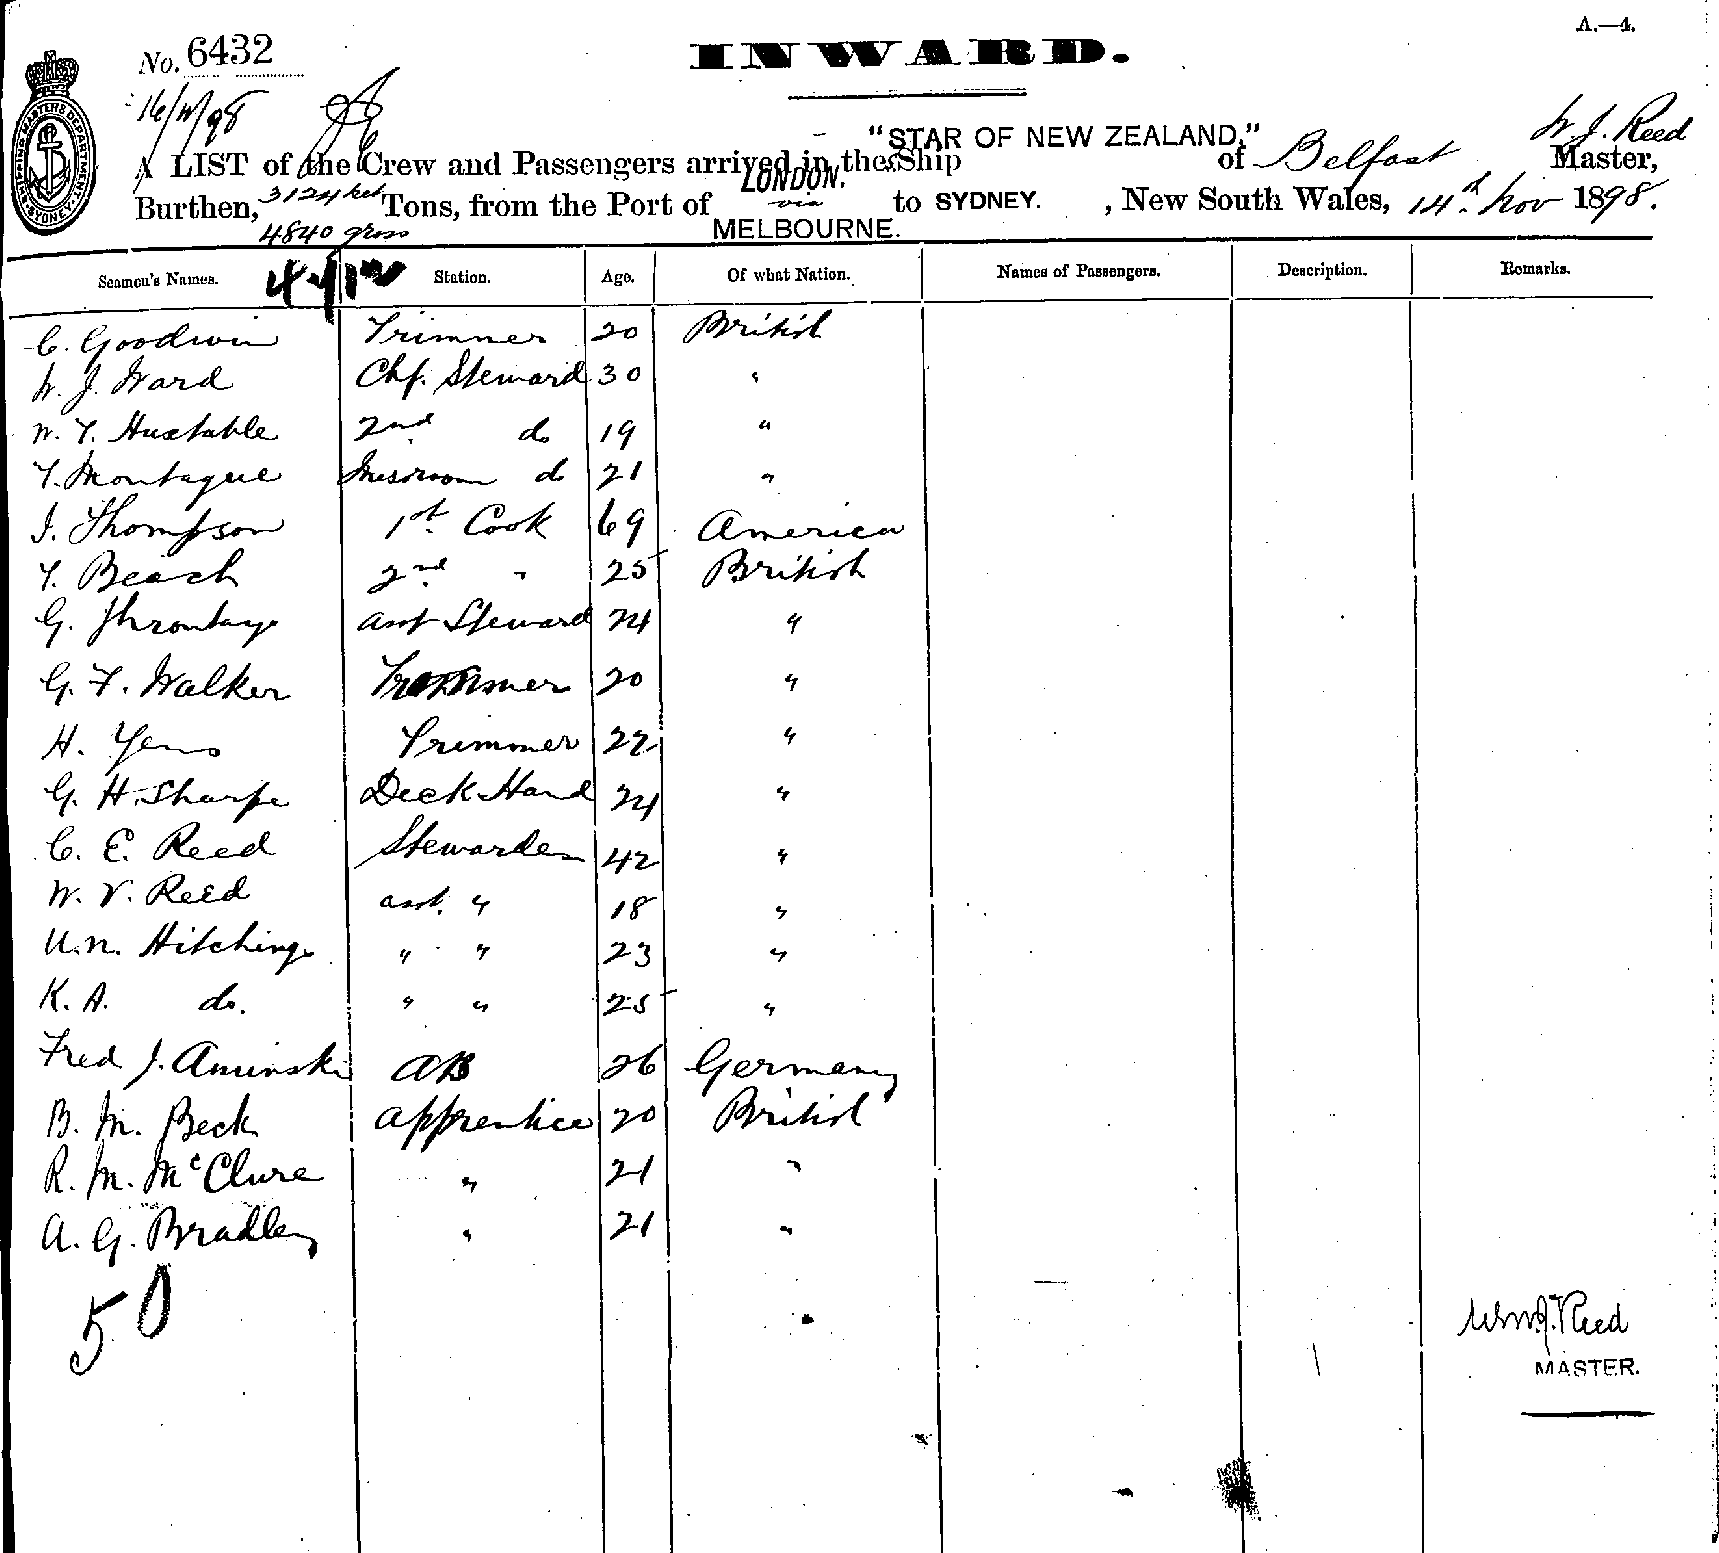 A.—4.
No. 6432
INWARD.
16/11/98
W. J. Reed
"STAR OF NEW ZEALAND,"
A LIST of the Crew and Passengers arrived in the Ship of Belfast Master,
LONDON.
Burthen, 3124 net Tons, from the Port of via to SYDNEY. , New South Wales, 14th Nov 1898.
4840 gross MELBOURNE.
Seamen's Names. Station. Age. Of what Nation. Names of Passengers. Description. Remarks.
C. Goodwin Trimmer 20 British
W. J. Ward Chf. Steward 30 "
W. T. Huxtable 2nd do 19 "
T. Montague Messroom do 21 "
J. Thompson 1st Cook 69 America
T. Beach 2nd " 25 British
G. asst Steward 24 "
G. F. Walker Trimmer 20 "
H. Trimmer 22 "
G. H. Sharpe Deck Hand 24 "
C. E. Reed Stewardess 42 "
W. V. Reed asst. " 18 "
U. N. Hitchings " " 23 "
K. A. do. " " 25 "
Fred J. Aminski AB 26 Germany
B. M. Beck apprentice 20 British
R. M. McClure " 21 "
A. G. Bradley " 21 "
50
Wm J. Reed
MASTER.